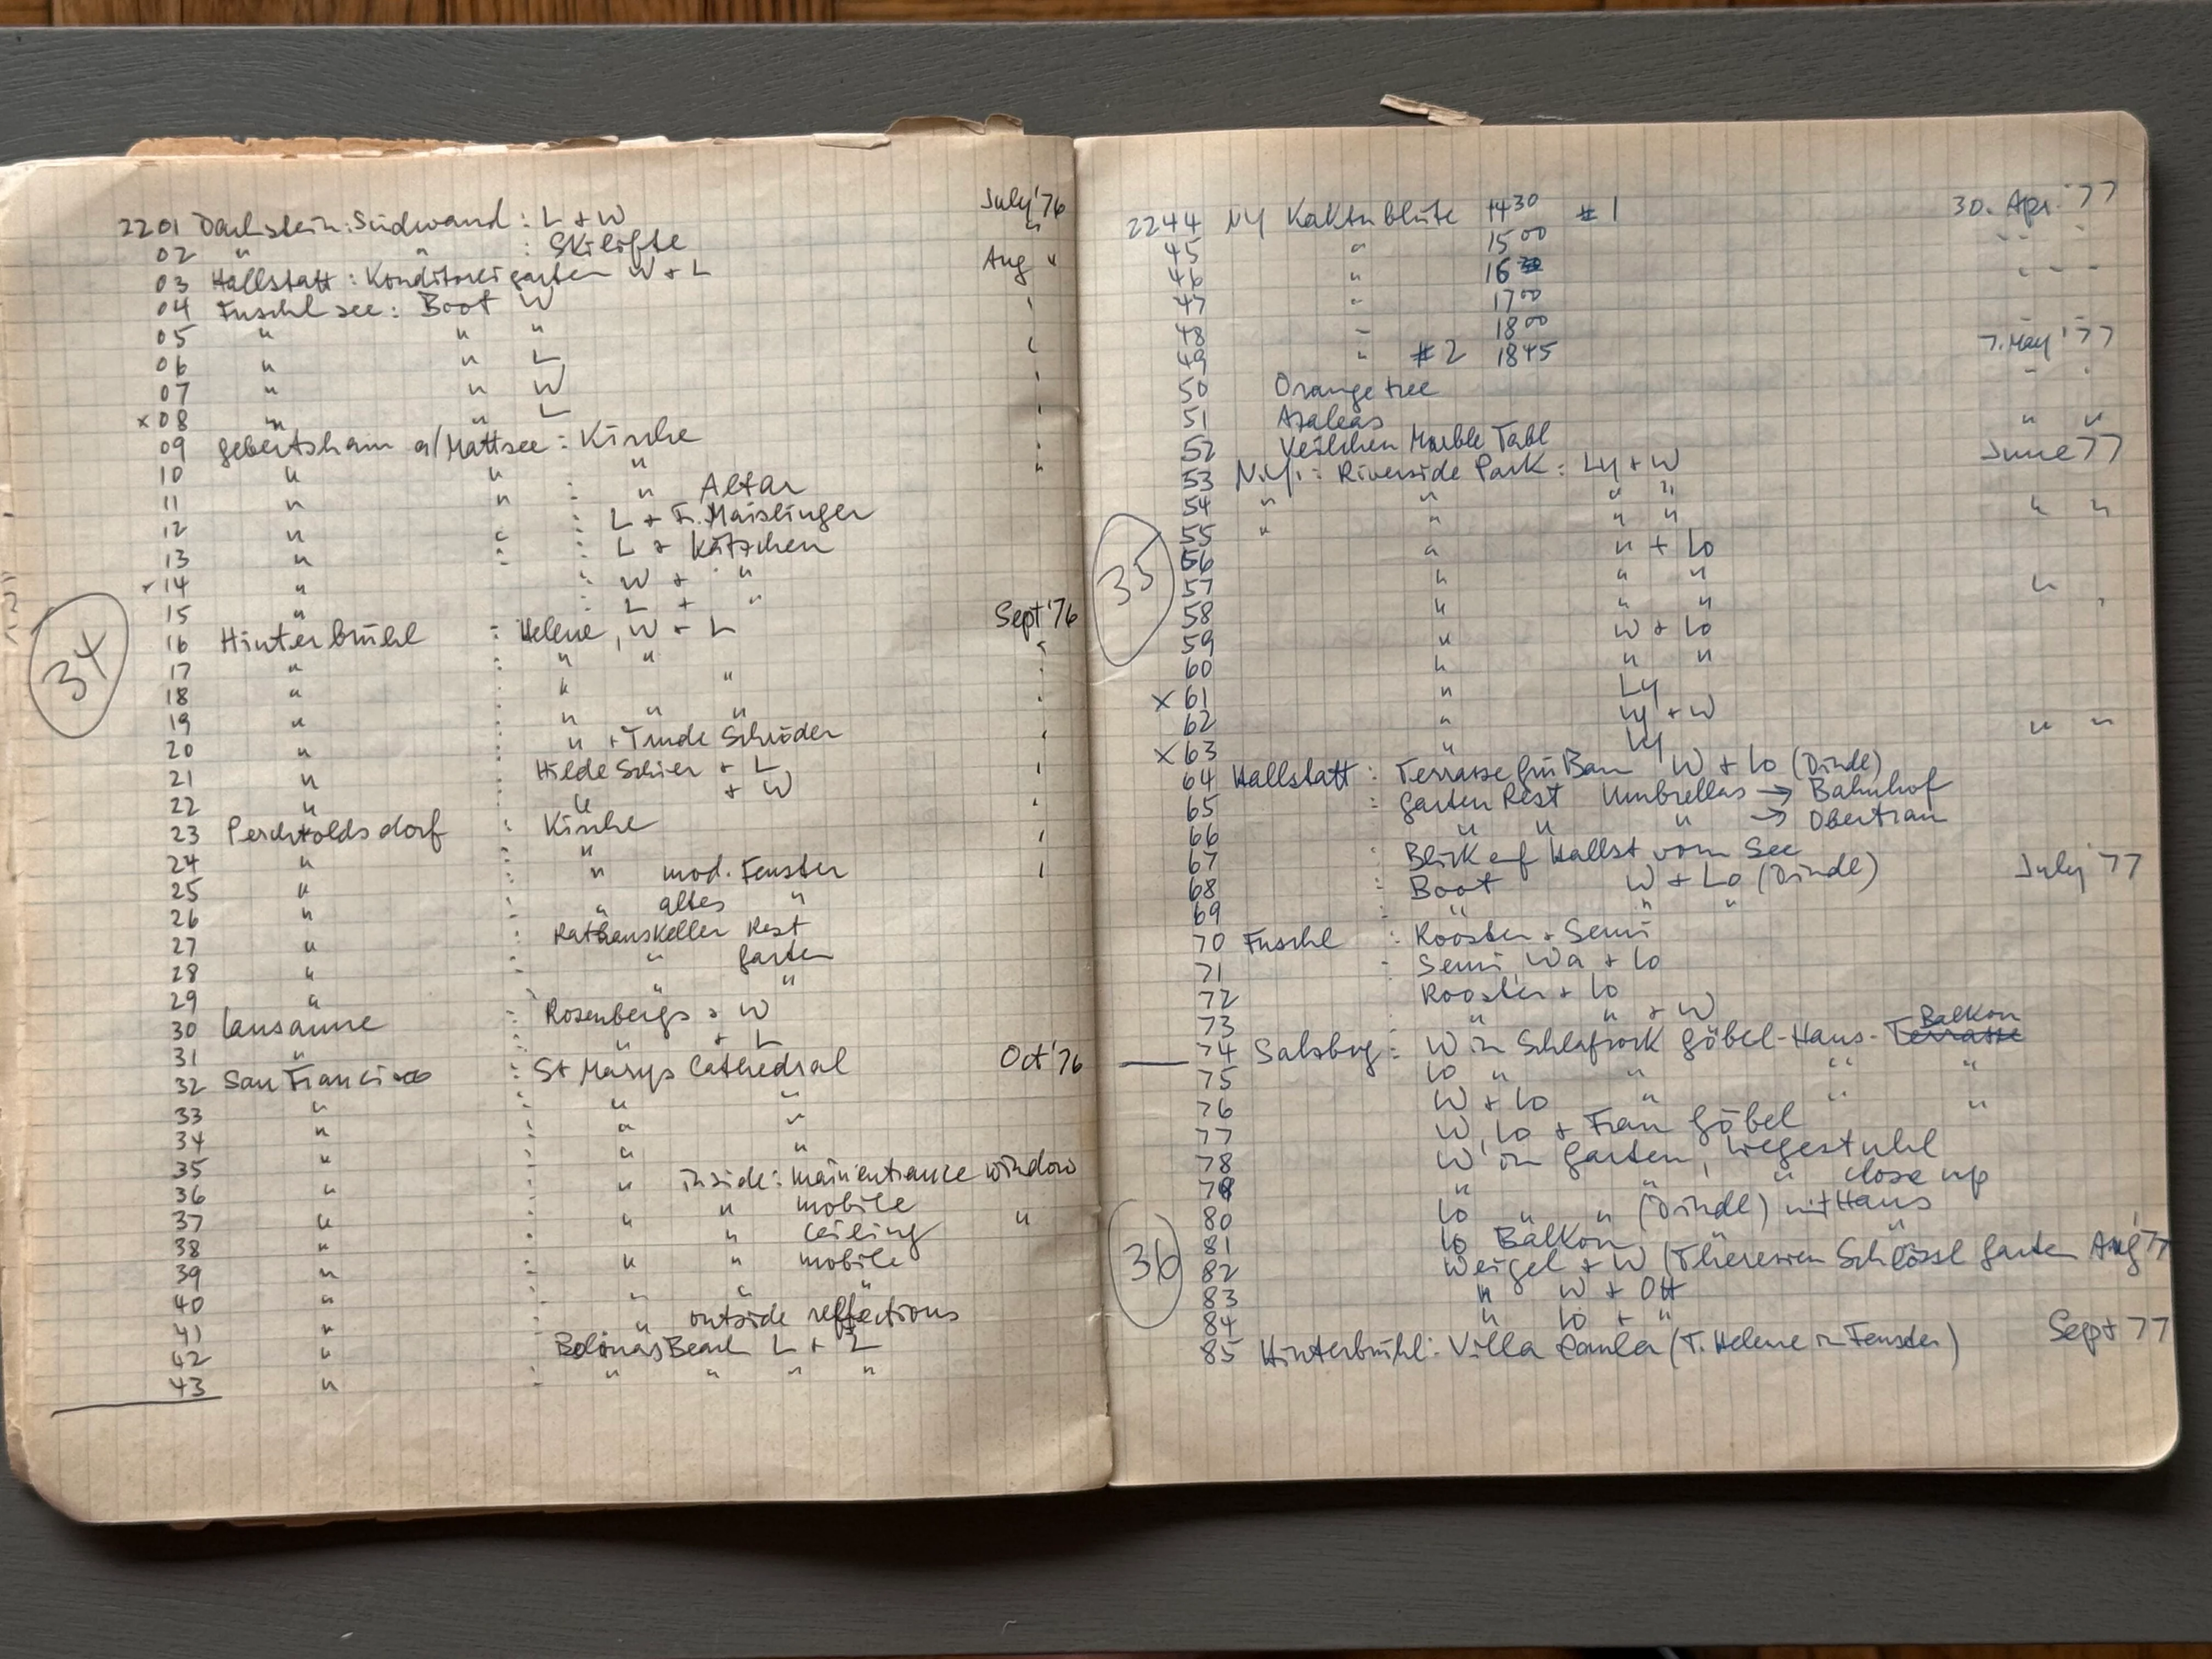 July '76
2201 Dachstein: Südwand: L + W "
02 " " : Skilifte
03 Hallstatt: Konditoreigarten W + L Aug "
04 Fuschlsee: Boot W
05 " " "
06 " " L
07 " " W
x 08 " " L
09 Gebertsham a/Mattsee: Kirche
10 " " "
11 " " : " Altar
12 " " : L + Fr. Maislinger
13 " " : L + Kätzchen
14 " : W + "
15 " : L + "
34
16 Hinterbrühl : Helene, W + L Sept '76
17 " : " "
18 " : " "
19 " : " " "
20 " : " + Trude Schröder
21 " : Hilde Schier + L
22 " : " + W
23 Perchtoldsdorf : Kirche
24 " : "
25 " : " mod. Fenster
26 " : " altes "
27 " : Rathauskeller Rest
28 " : " Garten
29 " : " "
30 Lausanne : Rosenbergs + W
31 " : " + L
32 San Francisco : St Marys Cathedral Oct '76
33 " : " "
34 " : " "
35 " : " "
36 " : " inside: main entrance window
37 " : " " mobile
38 " : " " ceiling "
39 " : " " mobile
40 " : " " "
41 " : " outside reflections
42 " : Bolinas Beach L + L
43 " : " " " "
2244 NY Kaktusblüte 14 30 # 1 30. Apr. '77
45 " 15 00
46 " 16
47 " 17 00
48 " 18 00
49 " # 2 18 45 7. May '77
50 Orange tree
51 Azaleas
52 Veilchen Marble Tabl " "
53 N.Y.: Riverside Park: Ly + W June 77
54 " " " "
55 " " " " " "
35
56 " " + Lo
57 " " "
58 " " " "
59 " W + Lo
60 " " "
x 61 " Ly
62 " Ly + W
x 63 " Ly " "
64 Hallstatt: Terrasse Grü Bau W + Lo (Dirndl)
65 : Garten Rest Umbrellas → Bahnhof
66 " " " → Obertraun
67 : Blick auf Hallst vom See
68 : Boot W + Lo (Dirndl) July '77
69 : " " "
70 Fuschl : Rooster + Semi
71 : Semi, Wa + Lo
72 Rooster + Lo
73 " " + W
74 Salzbrg: W in Schlafrock Göbel-Haus- Terrasse Balkon
75 Lo " " " "
76 W + Lo " " "
77 W, Lo + Frau Göbel
78 W in Garten, Liegestuhl
79 " " " close up
80 Lo " " (Dirndl) mit Haus
36
81 Lo Balkon " "
82 Weigel + W (Theresien Schlössl Garten Aug '77
83 " W + Ott
84 " Lo + "
85 Hinterbrühl: Villa Paula (T. Helene in Fenster) Sept 77